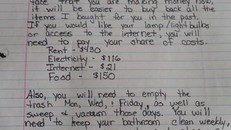 fact that you are making money now,
it will be easier to buy back all the
items I bought for you in the past.
If you would like your lamp/lightbulbs
or access to the internet, you will
need to pay your share of costs.
Rent - $430
Electricity - $116
Internet - $21
Food - $150
Also, you will need to empty the
trash Mon, Wed, & Friday, as well as
sweep & vacuum those days. You will
need to keep your bathroom clean weekly,